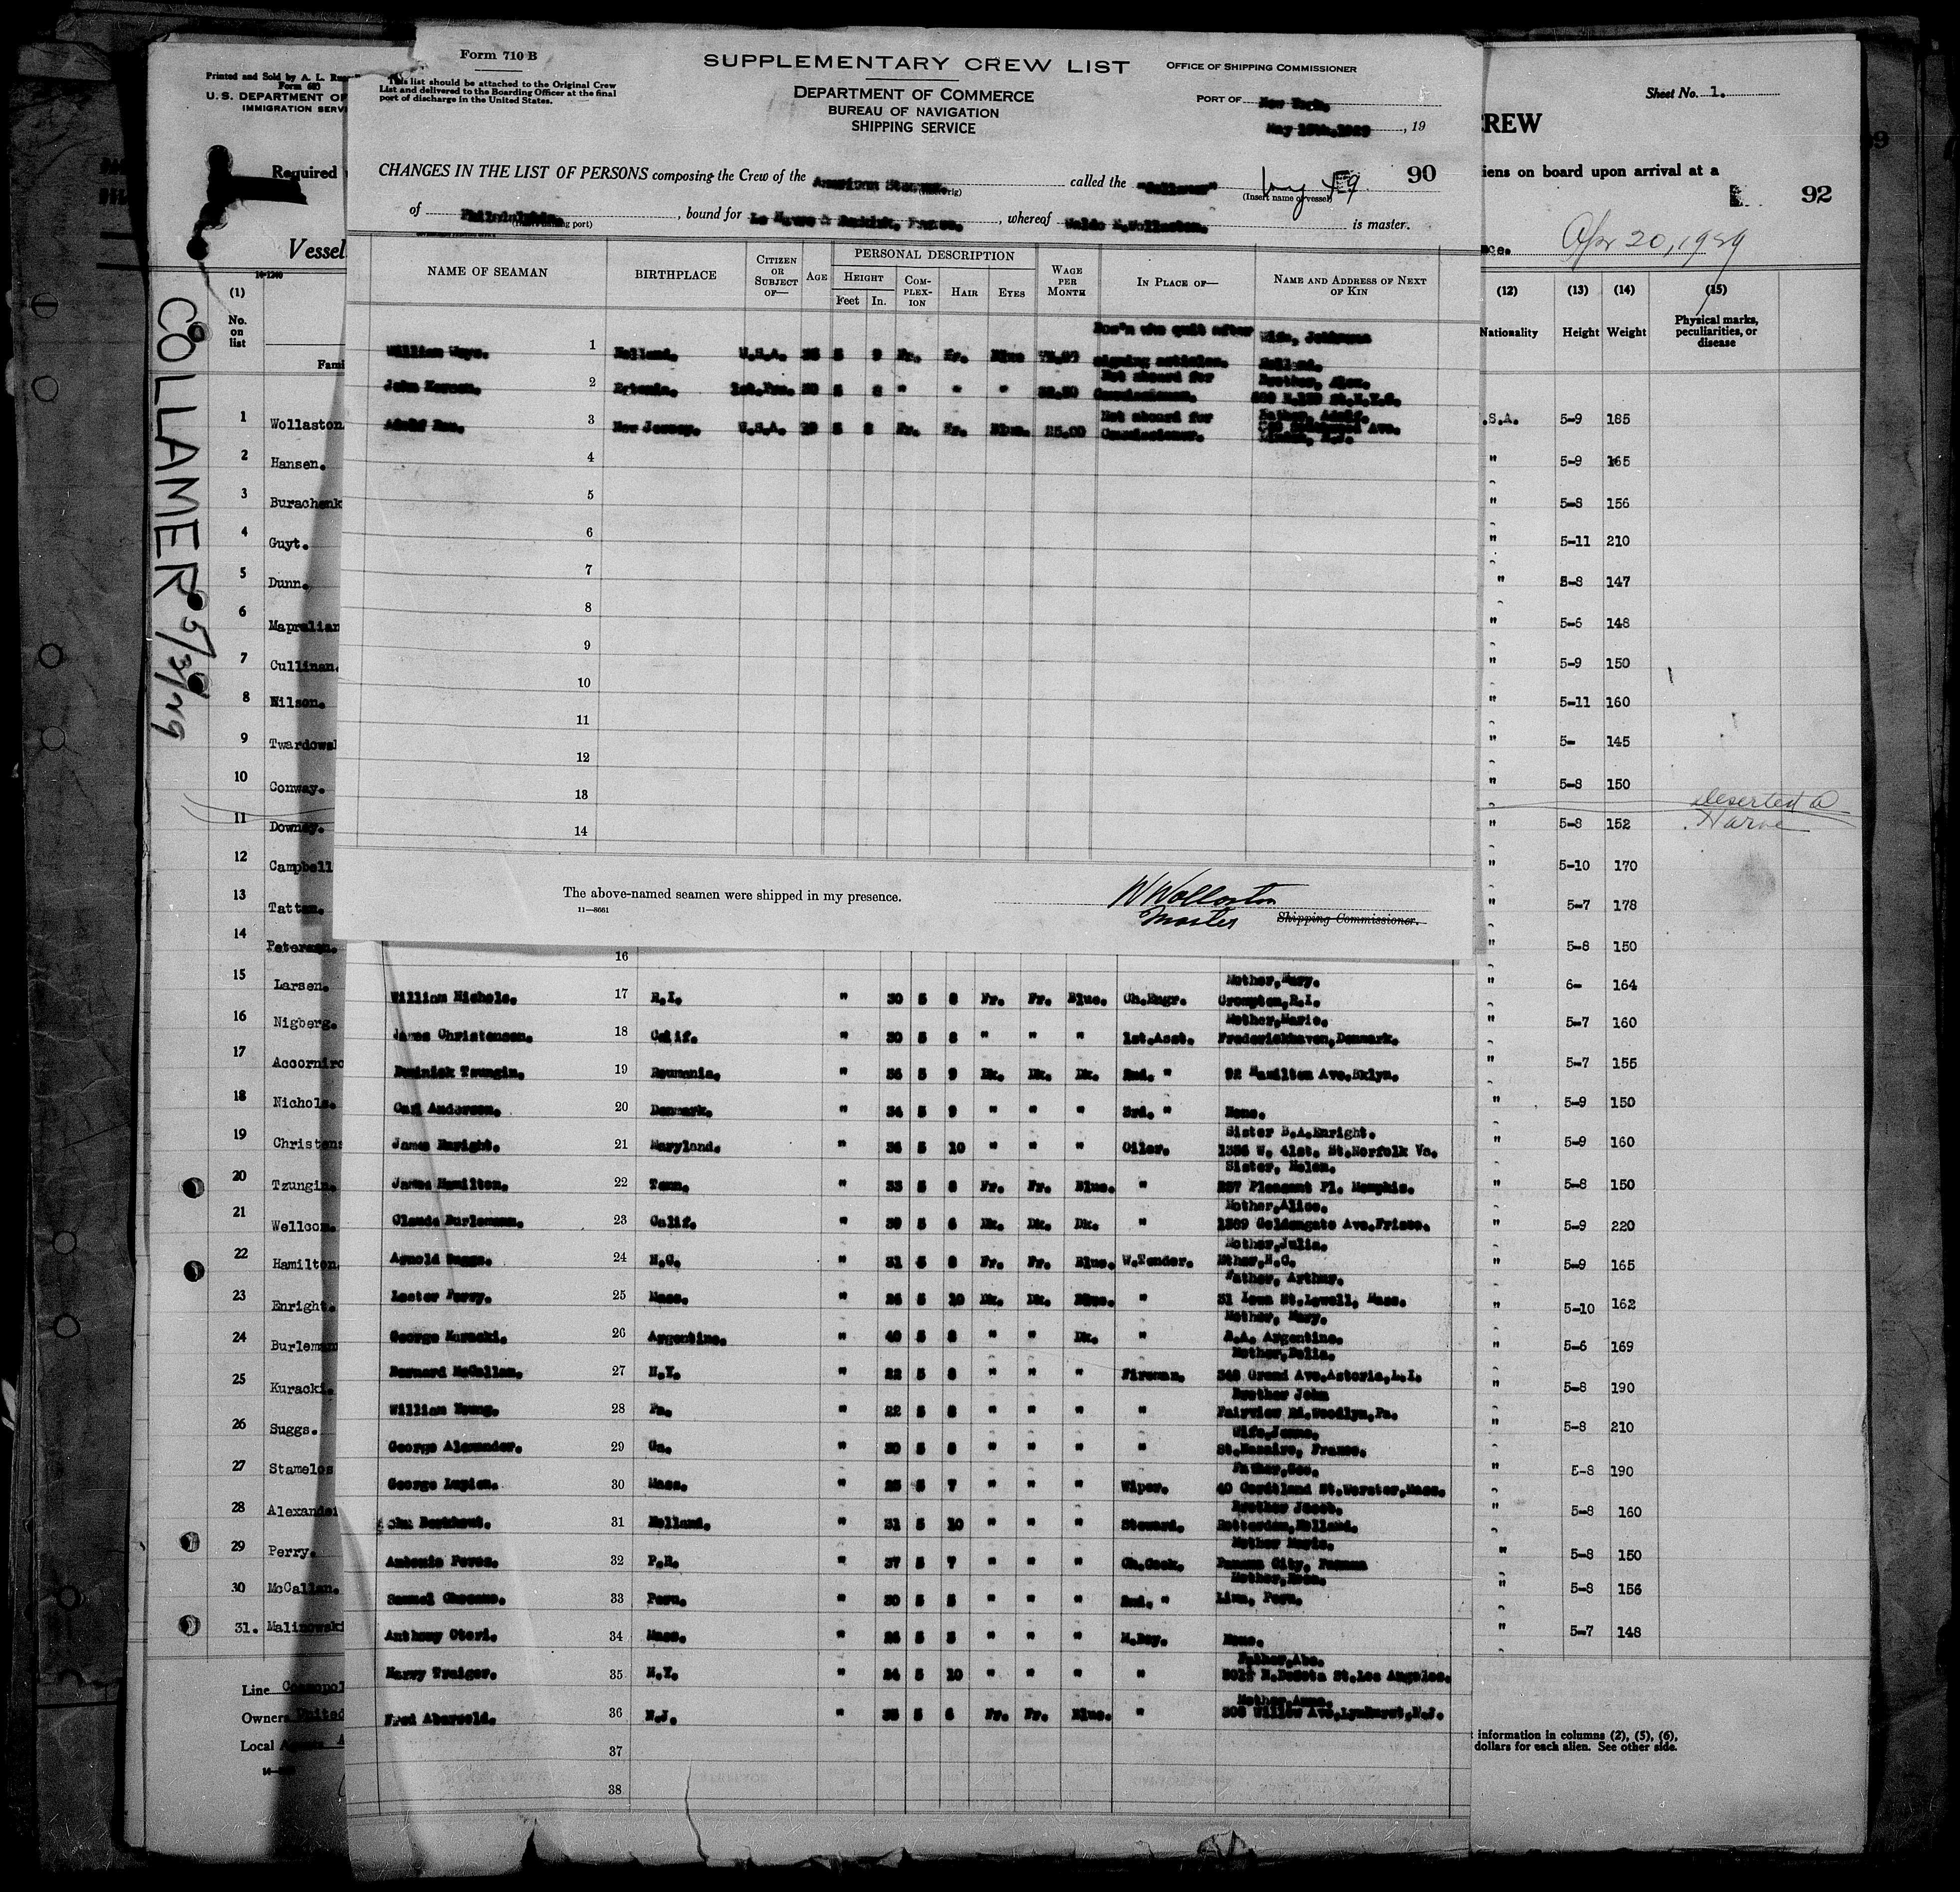 Form 710 B
This list should be attached to the Original Crew
List and delivered to the Boarding Officer at the final
port of discharge in the United States.
SUPPLEMENTARY CREW LIST
DEPARTMENT OF COMMERCE
BUREAU OF NAVIGATION
SHIPPING SERVICE
OFFICE OF SHIPPING COMMISSIONER
PORT OF New York.
, 19
CHANGES IN THE LIST OF PERSONS composing the Crew of the American called the "Collamer"
(Insert name of vessel)
90
of Philadelphia. , bound for Le Havre & Dunkirk, France. , whereof Waldo M.Wollaston. is master.
NAME OF SEAMAN BIRTHPLACE CITIZEN OR SUBJECT OF— AGE PERSONAL DESCRIPTION HEIGHT Feet In. COMPLEXION HAIR EYES WAGE PER MONTH IN PLACE OF— NAME AND ADDRESS OF NEXT OF KIN
Bos'n who quit after Wife,
William 1 Holland. U.S.A. 5 9 Fr. Fr. Blue signing articles. Holland.
Not aboard for Brother, Alex.
John 2 Estonia. 5 8 " " " Commissioner.
Not aboard for Father, Adolf.
Adolf 3 New Jersey. U.S.A. 5 8 Fr. Fr. Blue. 25.00 Commissioner. Linden, N.J.
4
5
6
7
8
9
10
11
12
13
14
The above-named seamen were shipped in my presence.
11—8661
W Wollaston
Master
Shipping Commissioner.
16
Mother, Mary.
William Nichols. 17 R.I. " 30 5 8 Fr. Fr. Blue. Ch.Engr. Crompton,R.I.
Mother,Marie.
James Christensen. 18 Calif. " 30 5 8 " " " 1st.Asst. Frederickhaven,Denmark.
Dominick Tzungin. 19 Roumania. " 36 5 9 Dk. Dk. Dk. 2nd. " 92 Hamilton Ave.Bklyn.
Carl Anderson. 20 Denmark. " 34 5 9 " " " 3rd. " None.
Sister B.A.Enright.
James Enright. 21 Maryland. " 36 5 10 " " " Oiler. W. 41st. St.Norfolk Va.
Sister, Helen.
James Hamilton. 22 Tenn. " 33 5 8 Fr. Fr. Blue. " Pleasant Pl. Memphis.
Mother,Alice.
Claude Burlemann. 23 Calif. " 39 5 6 Dk. Dk. Dk. " Goldengate Ave.Frisco.
Mother,Julia.
Arnold Suggs. 24 N.C. " 31 5 8 Fr. Fr. Blue. W.Tender. N.C.
Father, Arthur.
Lester Perry. 25 Mass. " 26 5 10 Dk. Dk. Blue. " 31 Iowa St.Lowell, Mass.
Mother, Mary.
George Kuracki. 26 Argentine. " 40 5 8 " " Dk. " B.A. Argentine.
Mother,Delia.
Bernard McCallan. 27 N.Y. " 22 5 8 " " " Fireman. Grand Ave.Astoria,L.I.
Brother John
William Young. 28 Pa. " 22 5 8 " " " " Fairview Rd.Woodlyn,Pa.
Wife,
George Alexander. 29 Ga. " 30 5 8 " " " " St.Nazaire, France.
Father,Geo.
George Lupien. 30 Mass. " 25 5 7 " " " Wiper. 40 St.Worster,Mass.
Brother Jacob.
31 Holland. " 31 5 10 " " " Steward. Rotterdam,Holland.
Mother Marie.
Antonio 32 P.R. " 37 5 7 " " " Ch.Cook. Panama City, Panama
Mother,Rosa.
Samuel 33 Peru. " 30 5 5 " " " 2nd. " Lima, Peru.
Anthony Oteri. 34 Mass. " 26 5 5 " " " M.Boy. None.
Father,Abe.
Harry Traiger. 35 N.Y. " 24 5 10 " " " " St.Los Angeles.
Mother,Anna.
Fred Abersold. 36 N.J. " 35 5 6 Fr. Fr. Blue. " 308 Willow Ave,Lynhurst,N.J.
37
38
Printed and Sold by A. L.
Form 680
U.S. DEPARTMENT OF
IMMIGRATION SERV
Required
Vessel
COLLAMER
(1)
No.
on
list
Fami
1 Wollaston
2 Hansen.
3 Burachenk
4 Guyt.
5 Dunn.
6 Maprelian
7 Cullinan.
8 Wilson.
9 Twardows
10 Conway.
11 Downey.
12 Campbell
13 Tattan.
14 Peterson.
15 Larsen.
16 Nigberg.
17 Accorniro
18 Nichols.
19 Christens
20 Tzungin.
21 Wellcom.
22 Hamilton.
23 Enright.
24 Burleman
25 Kuracki.
26 Suggs.
27 Stamelos
28 Alexander
29 Perry.
30 McCallan.
31. Malinowski
Line Cosmopol
Owners United
Local Agents
Sheet No. 1.
CREW
iens on board upon arrival at a
92
nce. Apr 20, 1929
(12) (13) (14) (15)
Nationality Height Weight Physical marks, peculiarities, or disease
.S.A. 5-9 185
" 5-9 165
" 5-8 156
" 5-11 210
" 5-8 147
" 5-6 148
" 5-9 150
" 5-11 160
" 5- 145
" 5-8 150
Deserted @
" 5-8 152 Havre
" 5-10 170
" 5-7 178
" 5-8 150
" 6- 164
" 5-7 160
" 5-7 155
" 5-9 150
" 5-9 160
" 5-8 150
" 5-9 220
" 5-9 165
" 5-10 162
" 5-6 169
" 5-8 190
" 5-8 210
" 5-8 190
" 5-8 160
" 5-8 150
" 5-8 156
" 5-7 148
information in columns (2), (5), (6),
dollars for each alien. See other side.